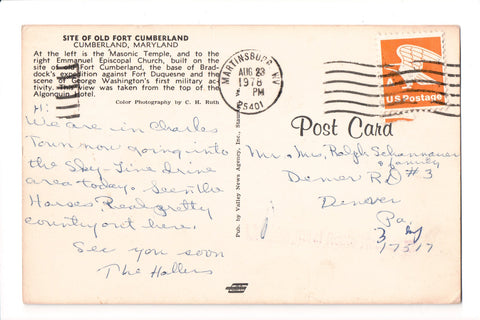 SITE OF OLD FORT CUMBERLAND
CUMBERLAND, MARYLAND
At the left is the Masonic Temple, and to the
right Emmanuel Episcopal Church, built on the
site of old Fort Cumberland, the base of Brad-
dock's expedition against Fort Duquesne and the
scene of George Washington's first military ac-
tivity. This view was taken from the top of the
Algonquin Hotel.
Color Photography by C. H. Ruth
Hi:
We are in Charles
Town now going into
the Sky-Line drive
area today. Seen the
Horses. Real pretty
country out here.
See you soon
The Hallers
Pub. by Valley News Agency, Inc.,
MARTINSBURG, WV
AUG 23
1978
PM
25401
A
US Postage
Post Card
Mr. Mrs. Ralph
& family
Denver RD #3
Denver
Pa.
17517